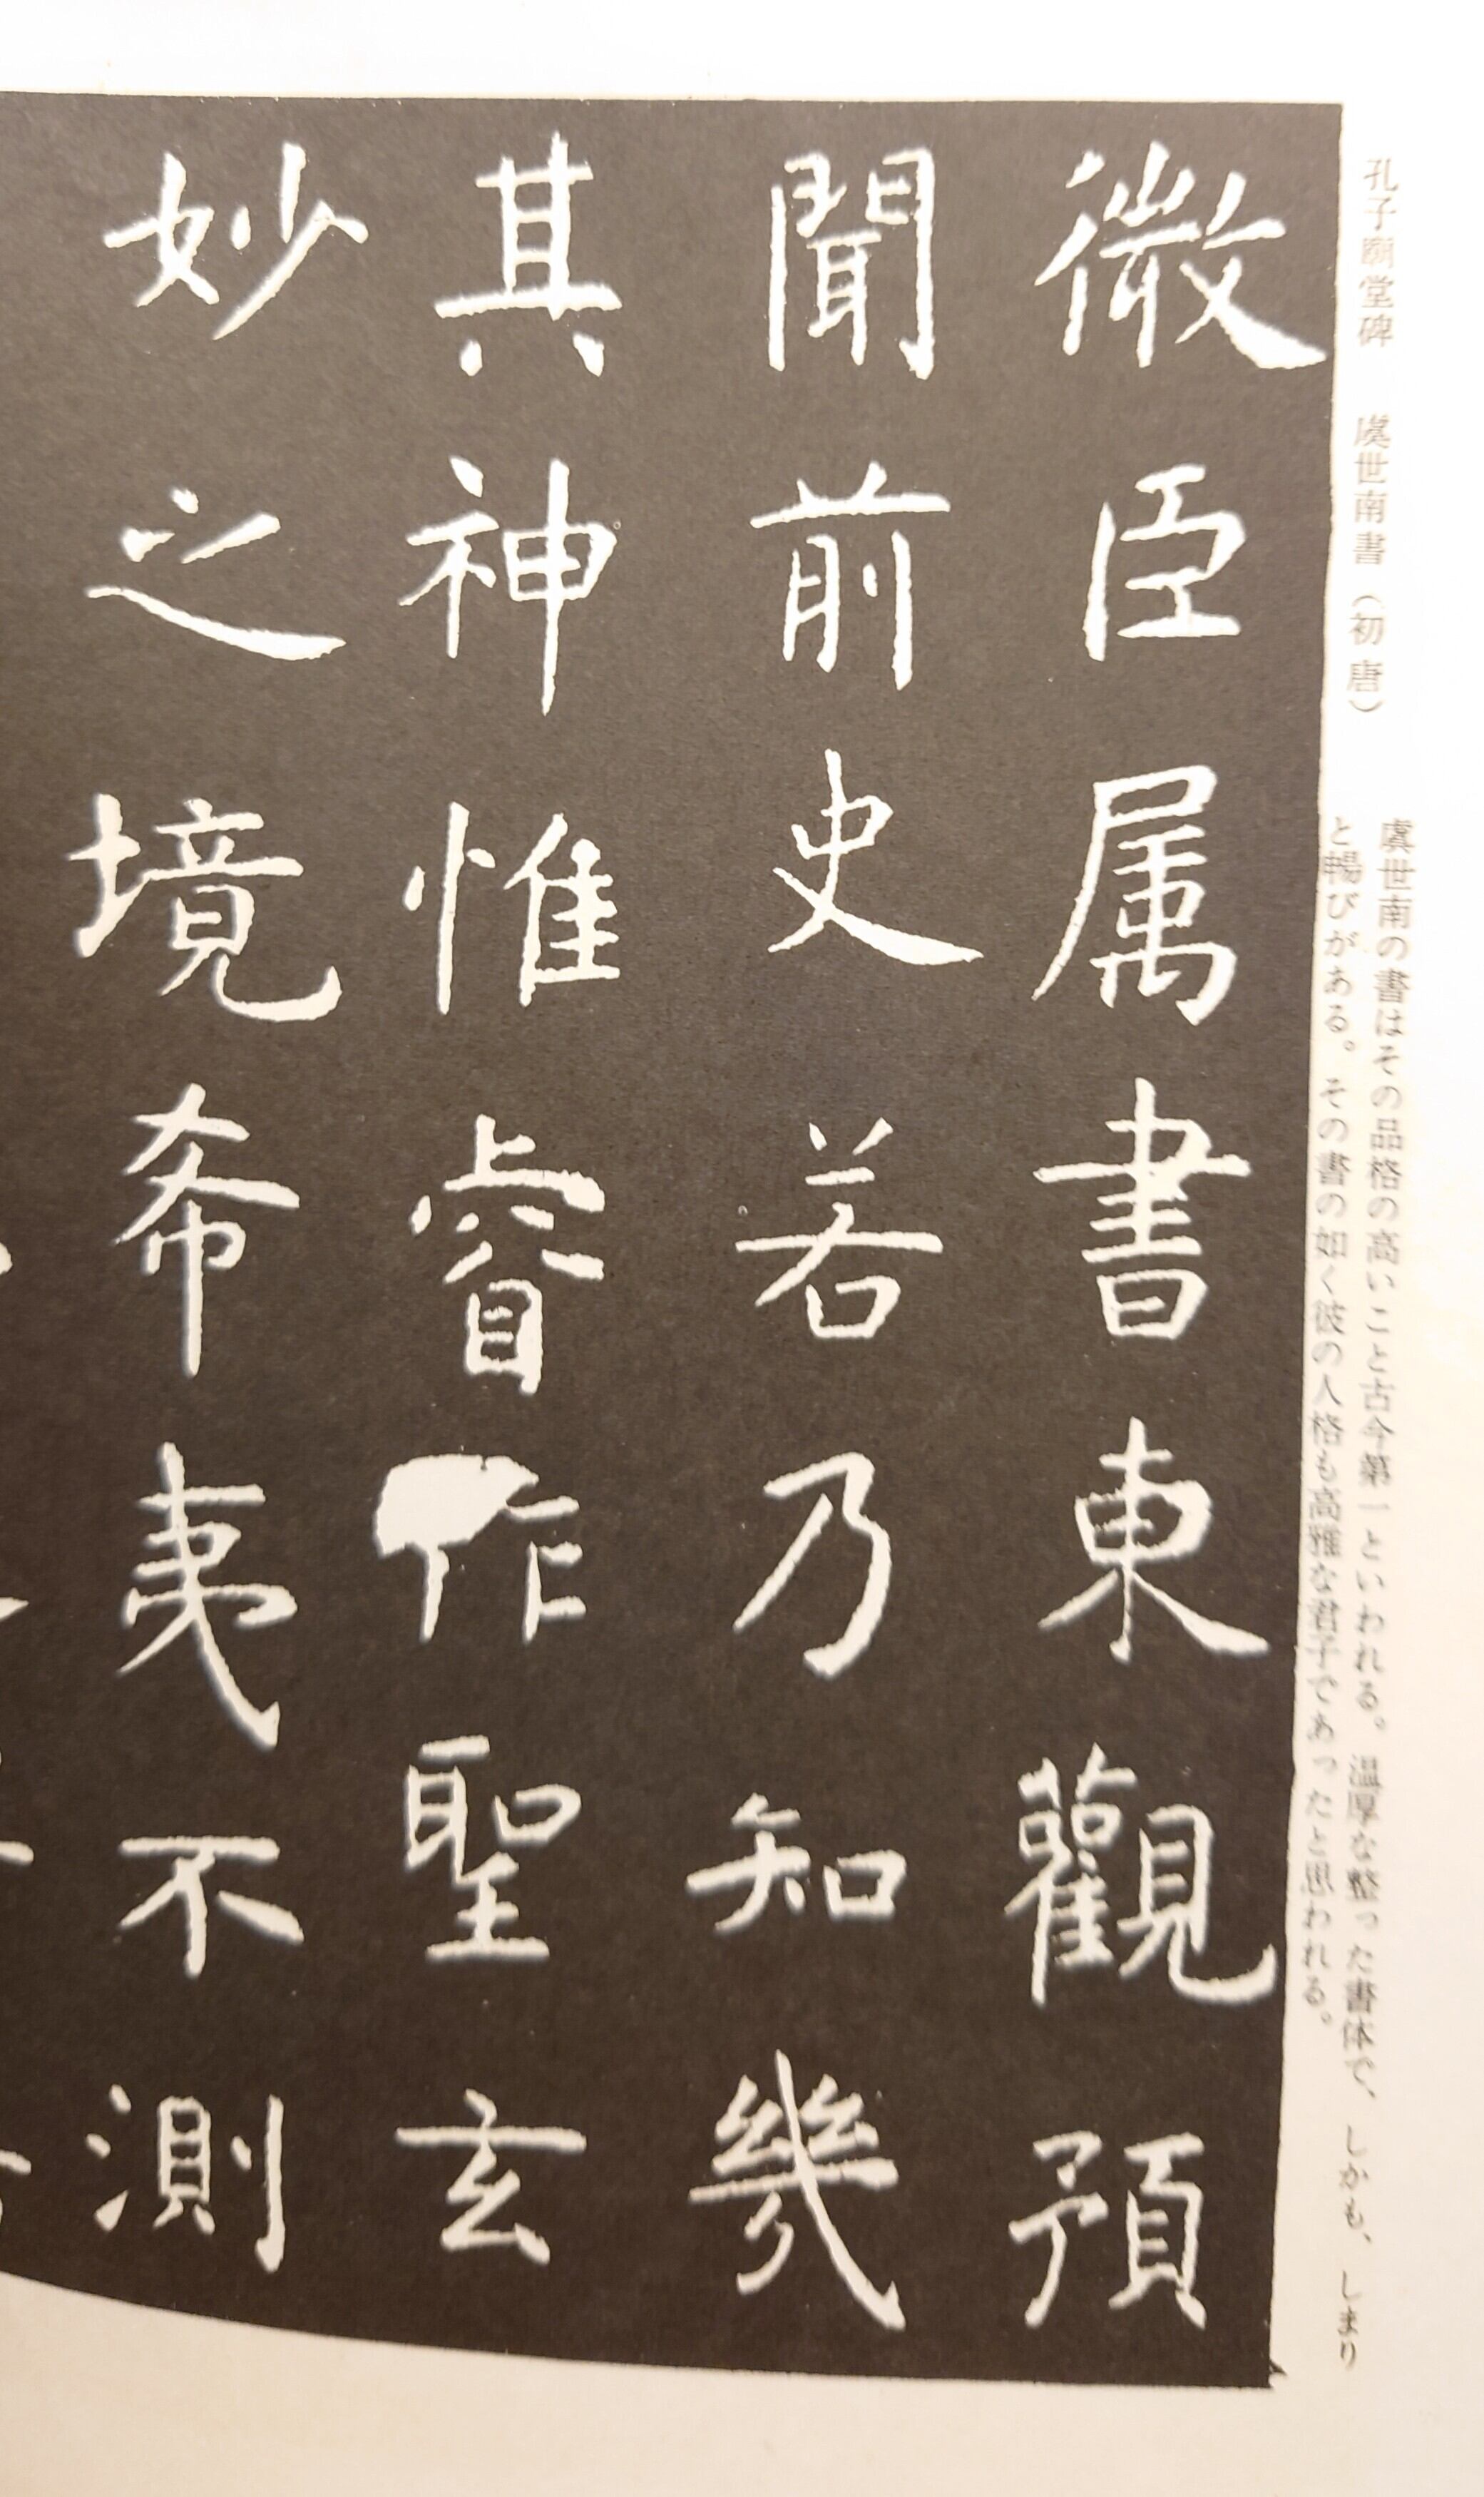 孔子廟堂碑 虞世南書(初唐)
虞世南の書はその品格の高いこと古今第一といわれる。温厚な整った書体で、しかも、しまり
と暢びがある。その書の如く彼の人格も高雅な君子であったと思われる。
微臣属書東觀預
聞前史若乃知幾
其神惟睿作聖玄
妙之境希夷不測